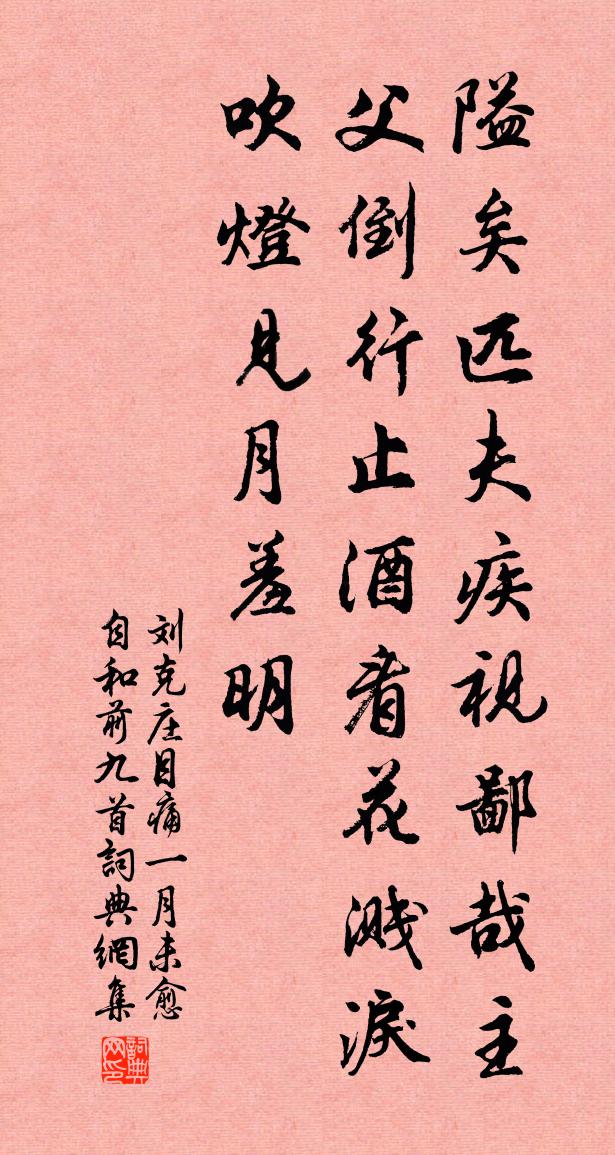 隘矣匹夫疾视鄙哉主
父倒行止酒看花溅淚
吹燈見月羞明
刘克庄目痛一月未愈
自和前九首詞典網集
詞典网印